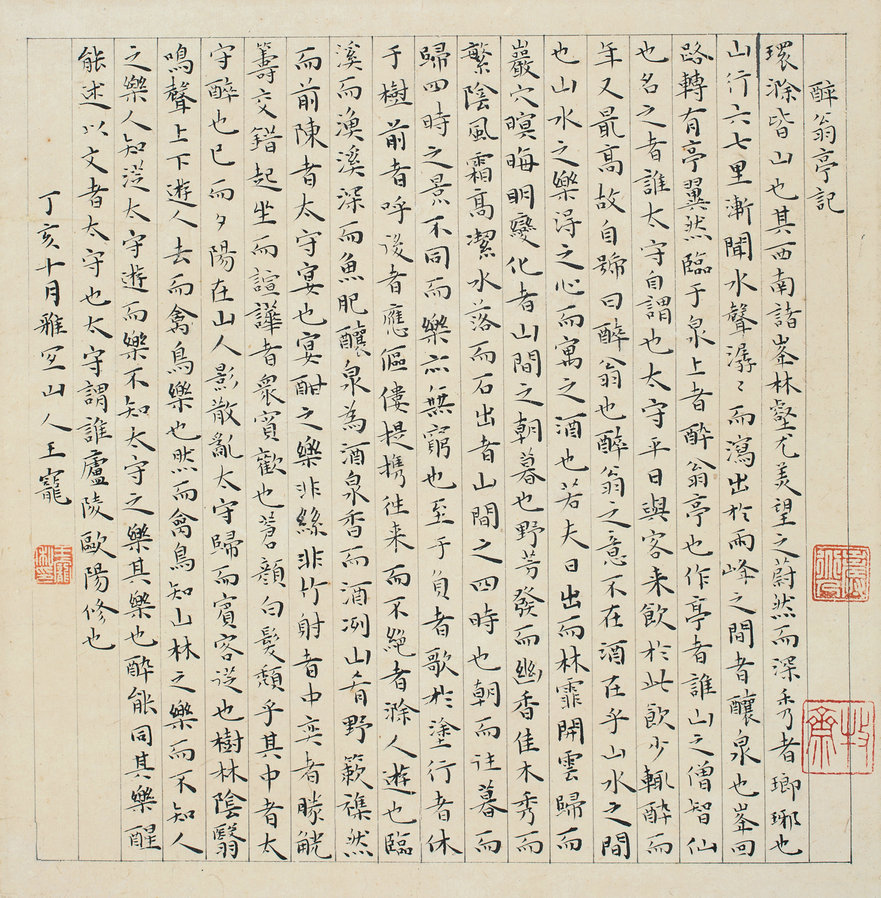 醉翁亭記
環滁皆山也其西南諸峯林壑尤美望之蔚然而深秀者瑯琊也
山行六七里漸聞水聲潺〻而瀉出於兩峰之間者釀泉也峯回
路轉有亭翼然臨于泉上者醉翁亭也作亭者誰山之僧智仙
也名之者誰太守自謂也太守平日與客来飲於此飲少輒醉而
年又最高故自號曰醉翁也醉翁之意不在酒在乎山水之間
也山水之樂得之心而寓之酒也若夫日出而林霏開雲歸而
巖穴暝晦明變化者山間之朝暮也野芳發而幽香佳木秀而
繁陰風霜高潔水落而石出者山間之四時也朝而往暮而
歸四時之景不同而樂亦無窮也至于負者歌於塗行者休
于樹前者呼後者應傴僂提攜往来而不絕者滁人遊也臨
溪而漁溪深而魚肥釀泉為酒泉香而酒冽山肴野蔌雜然
而前陳者太守宴也宴酣之樂非絲非竹射者中奕者勝觥
籌交錯起坐而諠譁者衆賓歡也蒼顏白髮頹乎其中者太
守醉也已而夕陽在山人影散亂太守歸而賓客從也樹林陰翳
鳴聲上下遊人去而禽鳥樂也然而禽鳥知山林之樂而不知人
之樂人知從太守遊而樂不知太守之樂其樂也醉能同其樂醒
能述以文者太守也太守謂誰廬陵歐陽修也
丁亥十月雅宜山人王寵
王寵私印